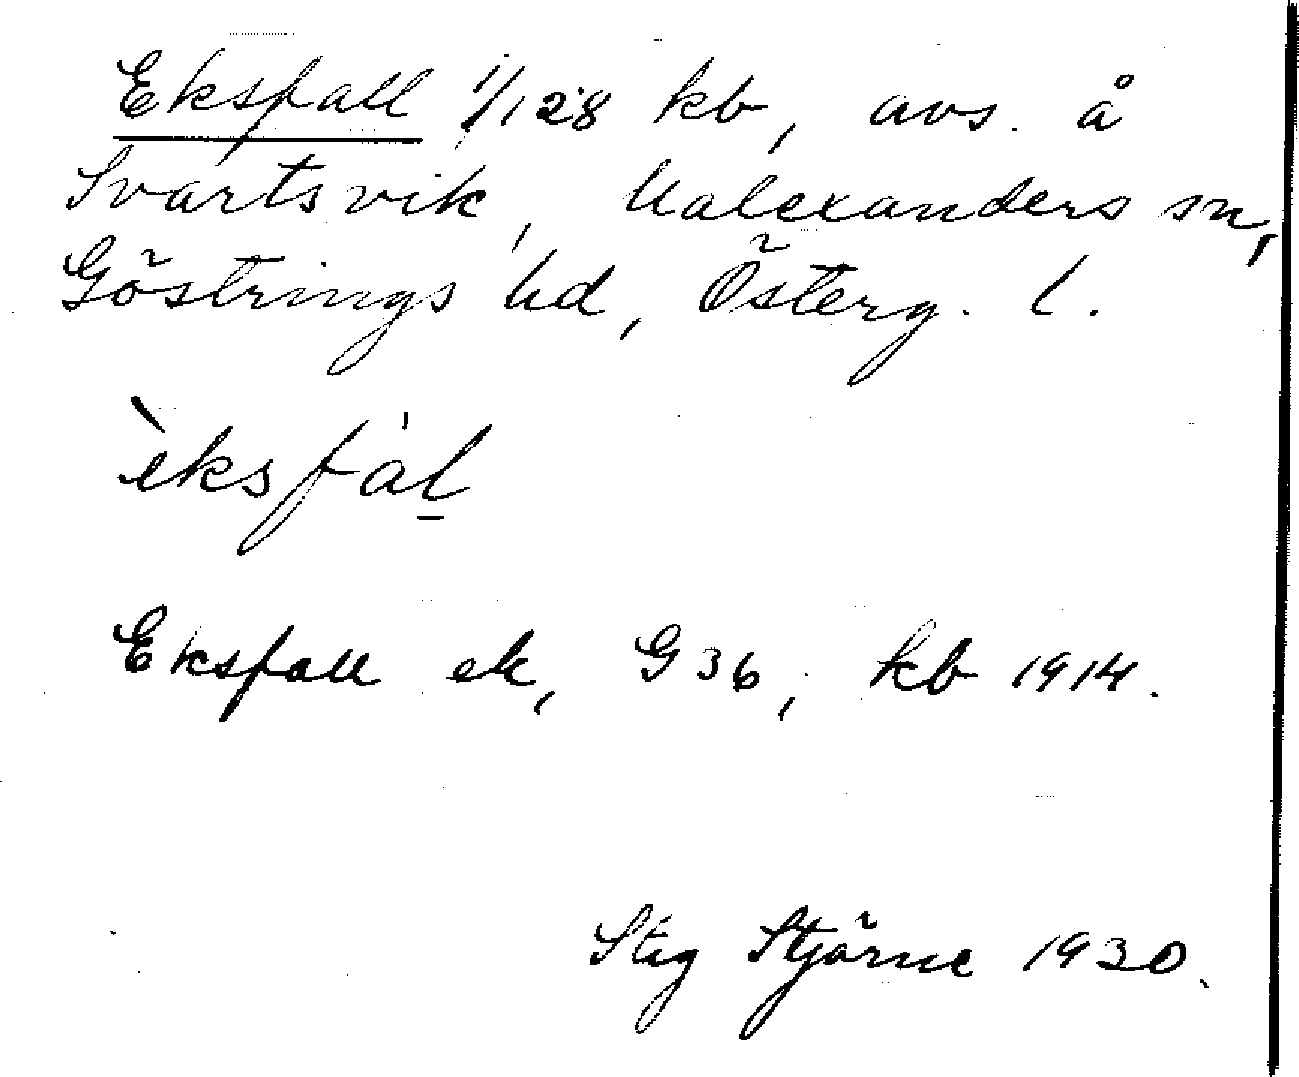 Eksfall 1/128 kb, avs. å
Svartsvik, Ualexanders sn,
Göstrings hd, Österg. l.
èksfál
Eksfall ek, G36, kb 1914.
Stig Stjärne 1930.